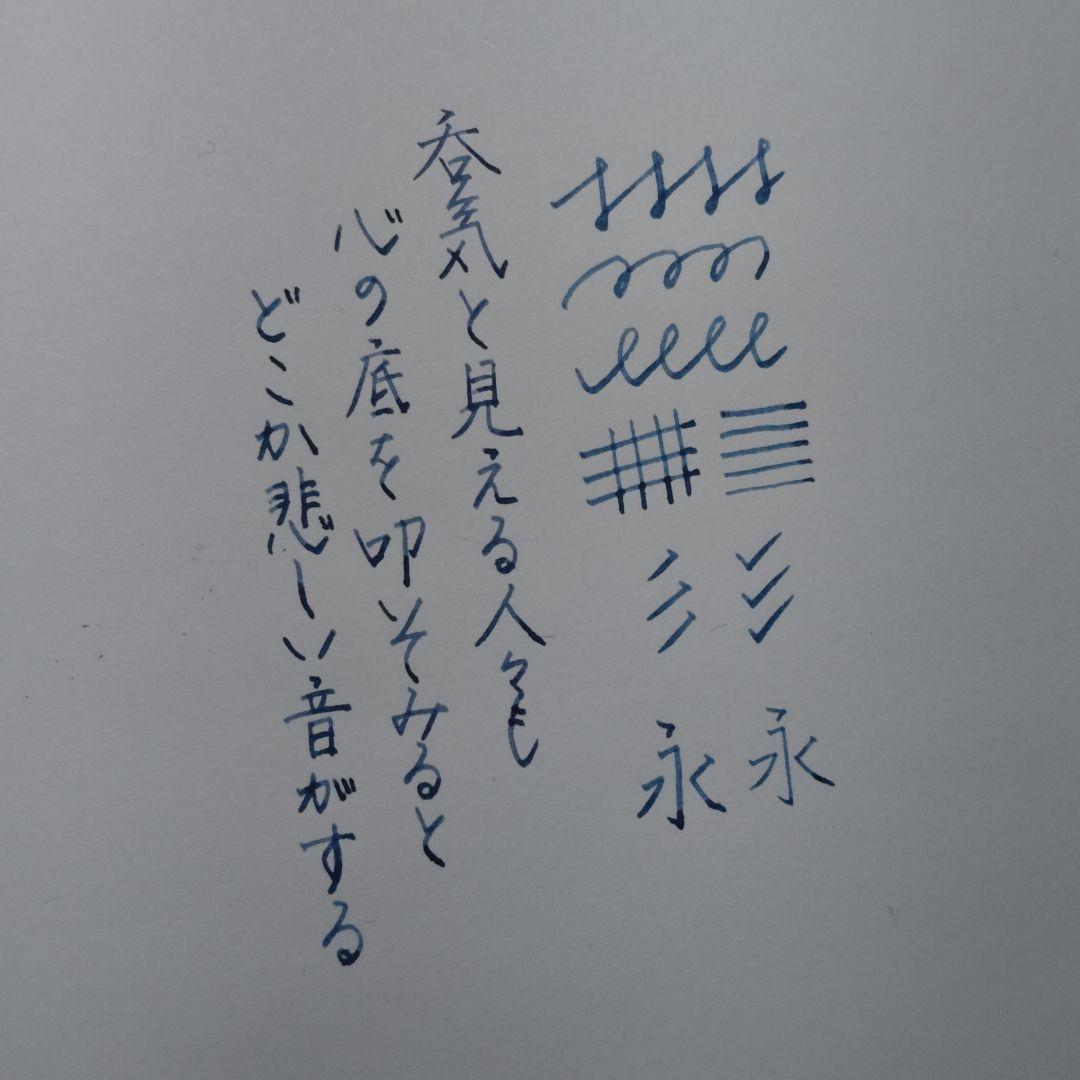 永永
呑気と見える人々も
心の底を叩そみると
どこか悲しい音がする